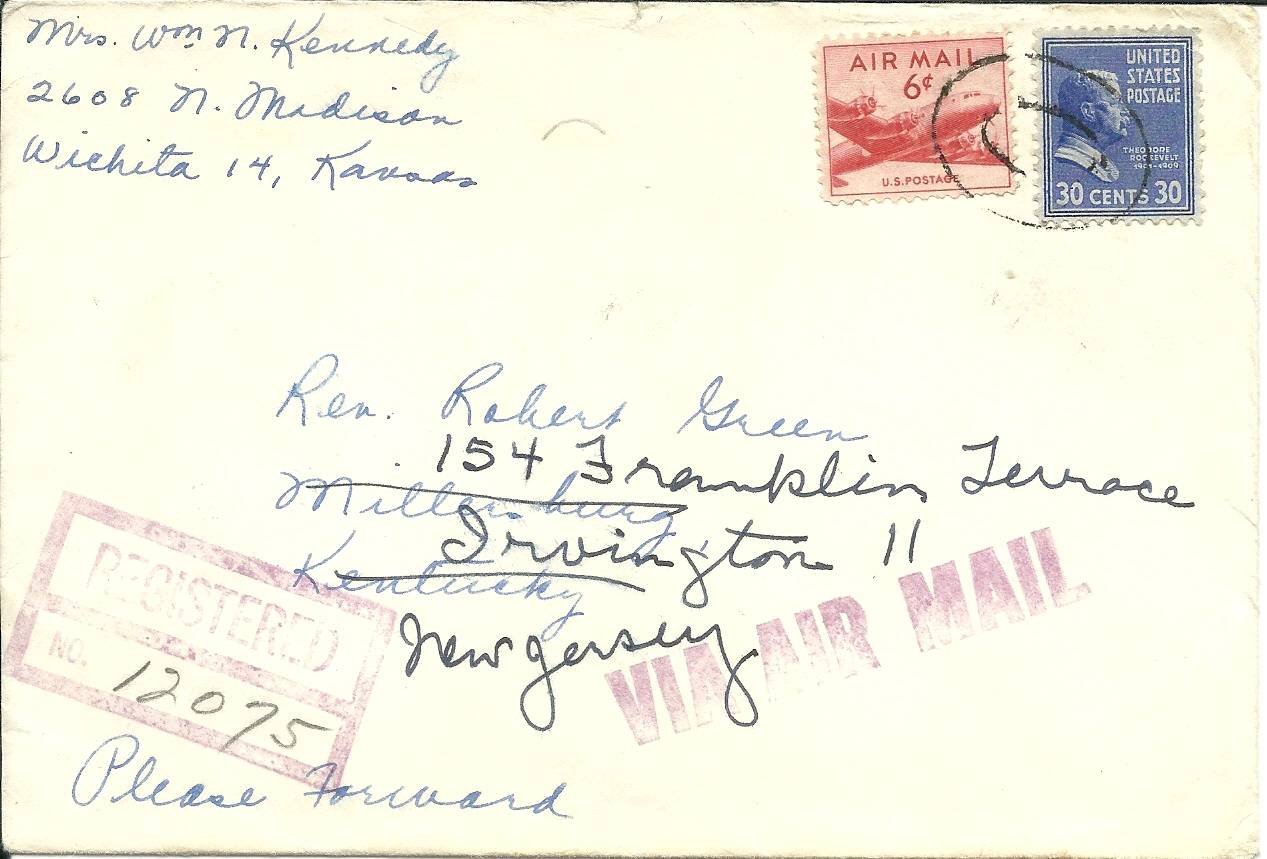 Mrs. Wm N. Kennedy
2608 N. Madison
Wichita 14, Kansas
AIR MAIL
6¢
U.S. POSTAGE
UNITED
STATES
POSTAGE
THEODORE
ROOSEVELT
1901-1909
30 CENTS 30
Rev. Robert Green
154 Franklin Terrace
Millersburg
Irvington 11
Kentucky
New Jersey
REGISTERED
NO. 12075
VIA AIR MAIL
Please Forward